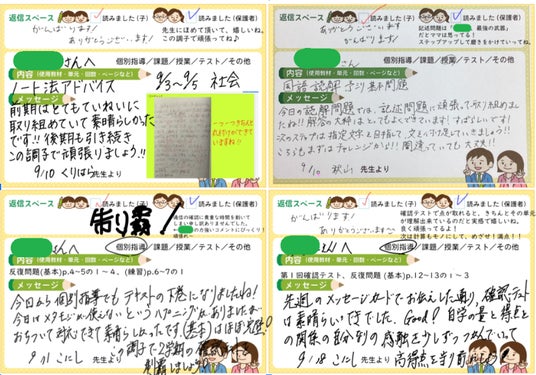 返信スペース 読みました(子) 読みました(保護者)
がんばります!
ありがとうございます!
先生にほめて頂いて、嬉しいね。
この調子で頑張ってね♪
さんへ 個別指導/課題/授業/テスト/その他
内容(使用教材・単元・回数・ページなど)
ノート法アドバイス 9/3〜9/5 社会
メッセージ
前期はとてもていねいに
取り組めていて素晴らしかった
です!!後期も引き続き
この調子で頑張りましょう!!
9/10 くりはら 先生より
返信スペース 読みました(子) 読みました(保護者)
ありがとうございます
がんばります!
記述問題は 最強の武器
だとママは思ってる!
ステップアップして磨きをかけていってね。
さんへ 個別指導/課題/授業/テスト/その他
内容(使用教材・単元・回数・ページなど)
国語 読解 予シリ 基本問題
メッセージ
今日の読解問題では、記述問題に頑張って取り組めまし
たね!!解答の大枠はとってもよくできています!すばらしいです!
次のステップは指定文字を目指して、文をふくらましていきましょう!!
こちらもまずはチャレンジから!!間違っていても大丈夫!!
9/10 秋山 先生より
返信スペース 読みました(子) 読みました(保護者)
さんへ 個別指導/課題/授業/テスト/その他
内容(使用教材・単元・回数・ページなど)
反復問題(基本)p.4~5の1~4、(練習)p.6~7の1
メッセージ
今日から個別指導でもテキストの下巻になりましたね!
おちついて対応できて素晴らしかったです。(基本)はほぼ完璧!
9/11 こにし 先生より
返信スペース 読みました(子) 読みました(保護者)
がんばります!
ありがとうございます
確認テストで点が取れると、きちんとその単元
が理解出来ているのだと実感で嬉しいね。
良く頑張ってるよ!
次は計算もモノにして、めざせ!満点!!
さんへ 個別指導/課題/授業/テスト/その他
内容(使用教材・単元・回数・ページなど)
第1回確認テスト、反復問題(基本)p.12~13の1~3
メッセージ
先週のメッセージカードでお伝えした通り、確認テスト
は素晴らしいできでした。Good! 自学の量と得点と
の関係の自分なりの感覚を少しずつつかんでいって
9/18 こにし 先生より 高得点を守りましょう!